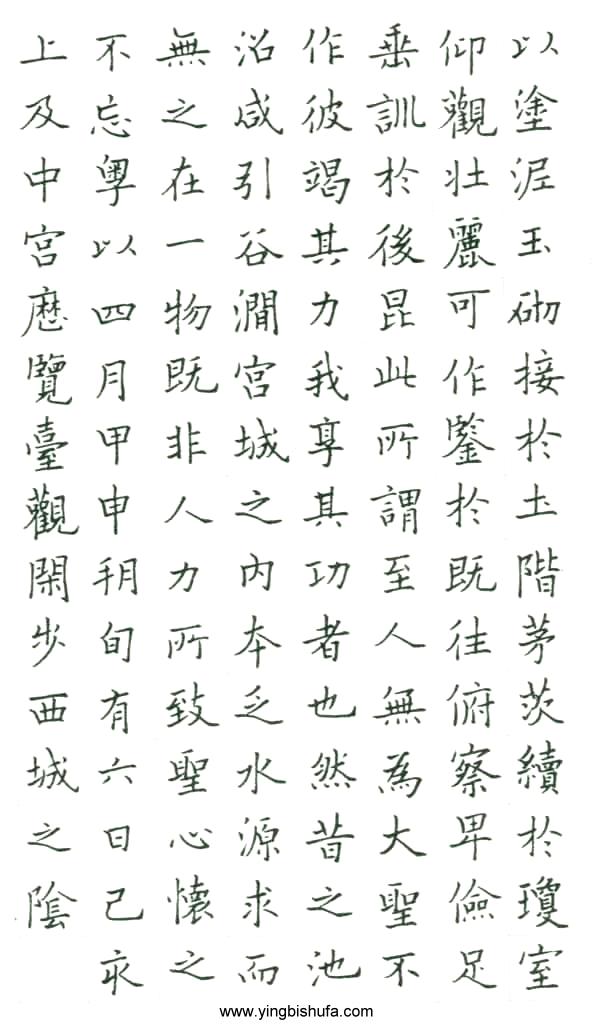 以塗泥玉砌接於土階茅茨續於瓊室
仰觀壯麗可作鑒於既往俯察卑儉足
垂訓於後昆此所謂至人無為大聖不
作彼竭其力我享其功者也然昔之池
沼咸引谷澗宮城之內本乏水源求而
無之在一物既非人力所致聖心懷之
不忘粵以四月甲申朔旬有六日己亥
上及中宮歷覽臺觀閑步西城之陰
www.yingbishufa.com